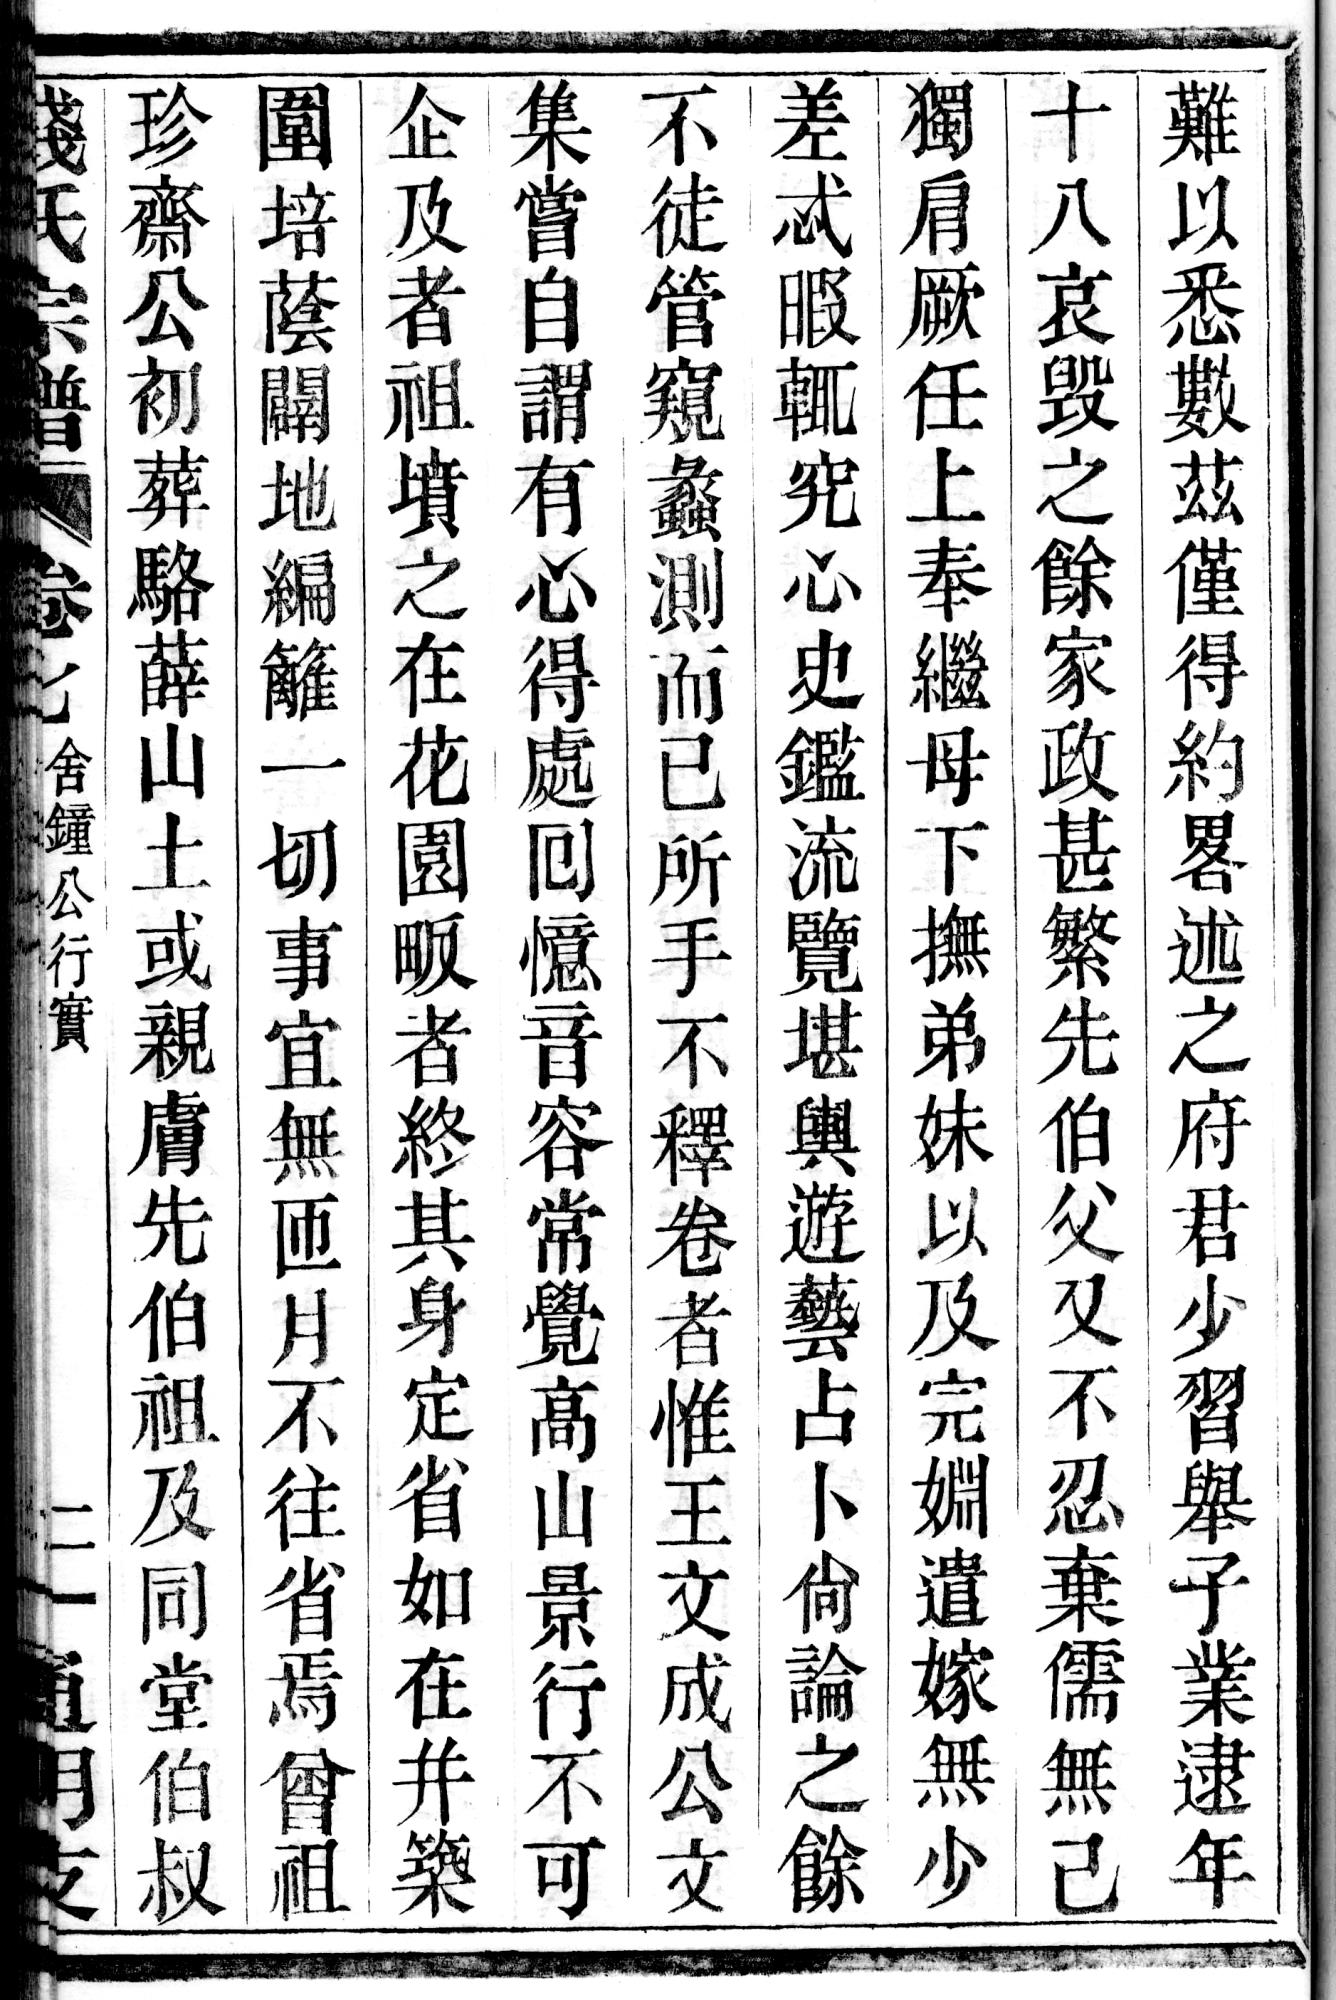 難以悉數茲僅得約畧述之府君少習舉子業逮年
十八哀毀之餘家政甚繁先伯父又不忍棄儒無己
獨肩厥任上奉繼母下撫弟妹以及完婣遣嫁無少
差忒暇輒究心史鑑流覽堪輿遊藝占卜尙論之餘
不徒管窺蠡測而已所手不釋卷者惟王文成公文
集嘗自謂有心得處回憶音容常覺高山景行不可
企及者祖墳之在花園畈者終其身定省如在幷築
圍培蔭闢地編籬一切事宜無匝月不往省焉曾祖
珍齋公初葬駱薛山土或親膚先伯祖及同堂伯叔
氏宗譜 卷七 舍鐘公行實 二一 通明支